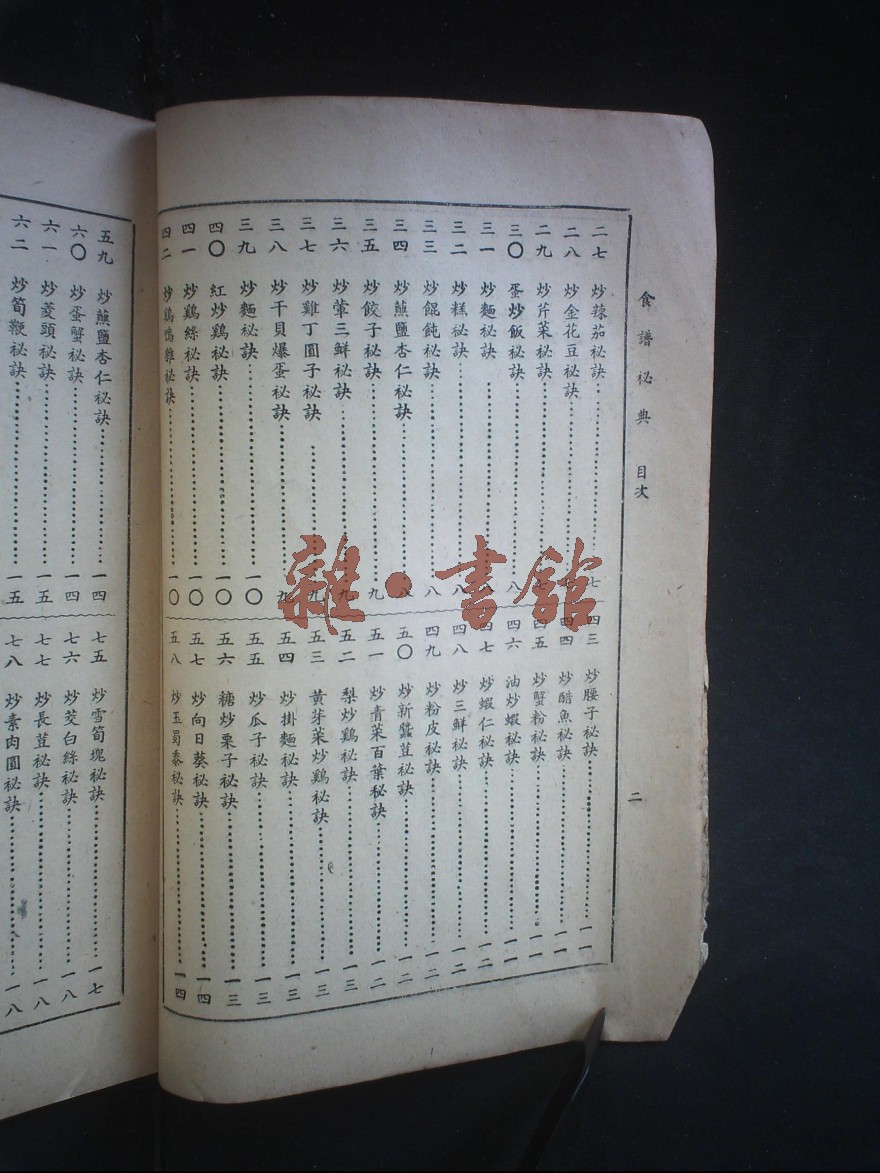 食譜秘典 目次
二
二七 炒辣茄秘訣 七
二八 炒金花豆秘訣 七
二九 炒芹菜秘訣 七
三〇 蛋炒飯秘訣 八
三一 炒麵秘訣 八
三二 炒糕秘訣 八
三三 炒餛飩秘訣 八
三四 炒蘸鹽杏仁秘訣 八
三五 炒餃子秘訣 九
三六 炒葷三鮮秘訣 九
三七 炒雞丁圓子秘訣 九
三八 炒干貝爆蛋秘訣 九
三九 炒麵秘訣 一〇
四〇 紅炒鷄秘訣 一〇
四一 炒鷄絲秘訣 一〇
四二 炒鷄鴨雜秘訣 一〇
四三 炒腰子秘訣 一一
四四 炒醋魚秘訣 一一
四五 炒蟹粉秘訣 一一
四六 油炒蝦秘訣 一一
四七 炒蝦仁秘訣 一二
四八 炒三鮮秘訣 一二
四九 炒粉皮秘訣 一二
五〇 炒新蠶荳秘訣 一二
五一 炒青菜百葉秘訣 一二
五二 梨炒鷄秘訣 一三
五三 黃芽菜炒鷄秘訣 一三
五四 炒掛麵秘訣 一三
五五 炒瓜子秘訣 一三
五六 糖炒栗子秘訣 一三
五七 炒向日葵秘訣 一四
五八 炒玉蜀黍秘訣 一四
五九 炒蘸鹽杏仁秘訣 一四
六〇 炒蛋蟹秘訣 一四
六一 炒菱頭秘訣 一五
六二 炒筍鞭秘訣 一五
七五 炒雪筍塊秘訣 一七
七六 炒茭白絲秘訣 一八
七七 炒長荳秘訣 一八
七八 炒素肉圓秘訣 一八
雜·書館